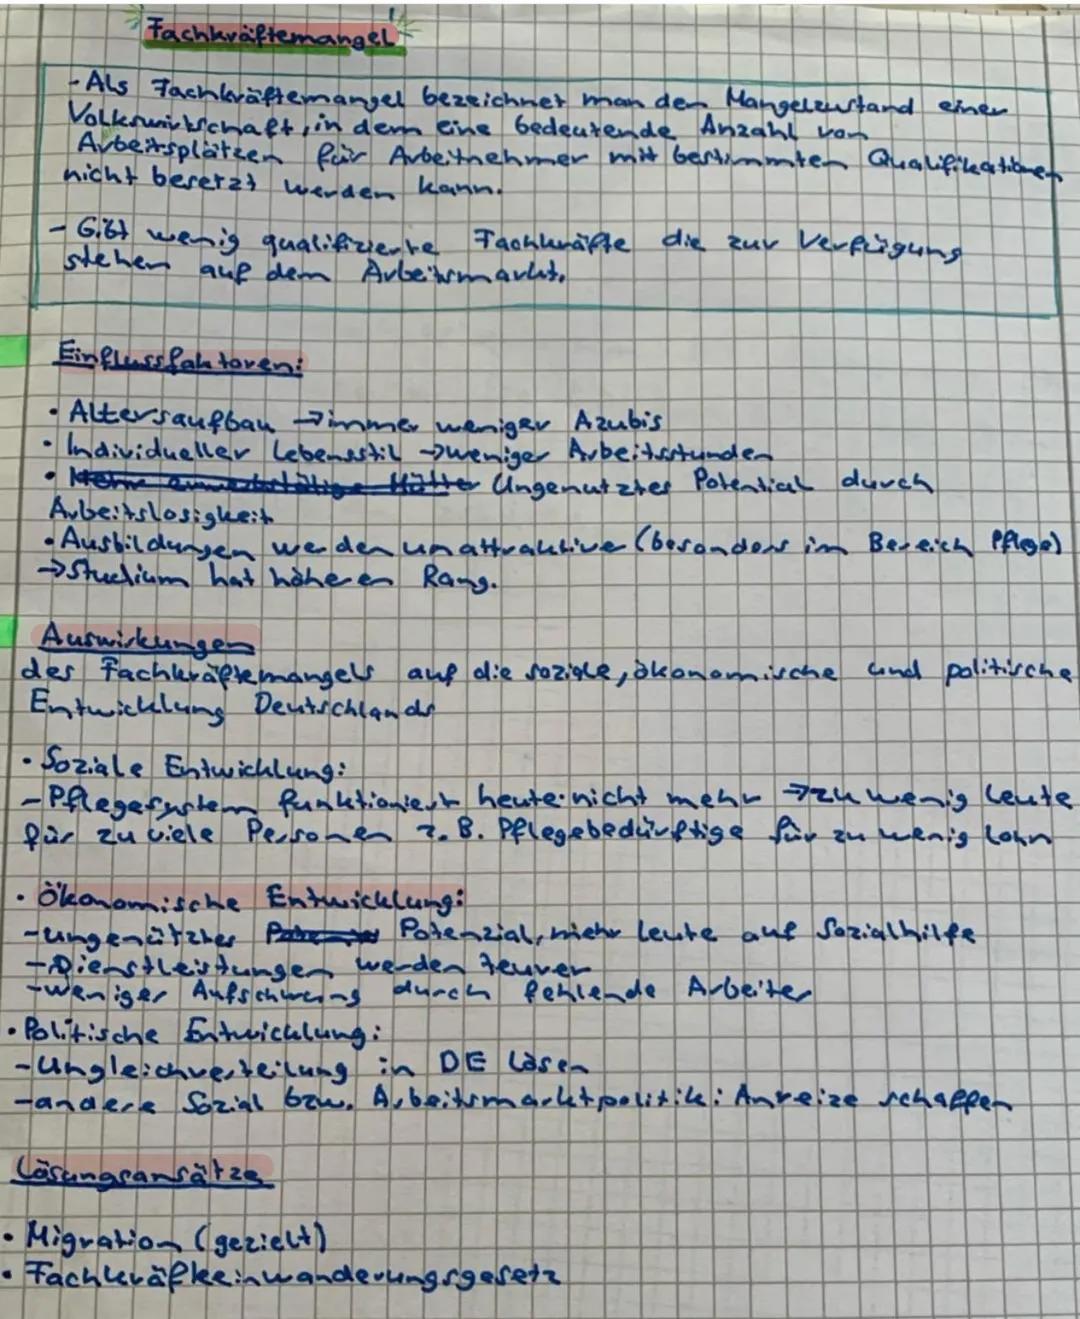 Fachkräftemangel
- Als Fachkräftemangel bezeichnet man den Mangelzustand einer
Volkswirtschaft, in dem eine bedeutende Anzahl von
Arbeitsplätzen für Arbeitnehmer mit bestimmten Qualifikationen
nicht besetzt werden kann.
- Gibt wenig qualifizierte Fachkräfte die zur Verfügung
stehen auf dem Arbeitsmarkt.
Einflussfaktoren:
• Altersaufbau → immer weniger Azubis
• Individueller Lebensstil → weniger Arbeitsstunden
• Ungenutztes Potential durch
Arbeitslosigkeit
• Ausbildungen werden unattraktive (besonders im Bereich Pflege)
→ Studium hat höheren Rang.
Auswirkungen
des Fachkräftemangels auf die soziale, ökonomische und politische
Entwicklung Deutschlands
• Soziale Entwicklung:
- Pflegesystem funktioniert heute nicht mehr → zu wenig Leute
für zu viele Personen z.B. Pflegebedürftige für zu wenig Lohn
• Ökonomische Entwicklung:
- ungenütztes Potenzial, mehr Leute auf Sozialhilfe
- Dienstleistungen werden teurer
- weniger Aufschwung durch fehlende Arbeiter
• Politische Entwicklung:
- Ungleichverteilung in DE lösen
- andere Sozial bzw. Arbeitsmarktpolitik: Anreize schaffen
Lösungsansätze
• Migration (gezielt)
• Fachkräfteeinwanderungsgesetz